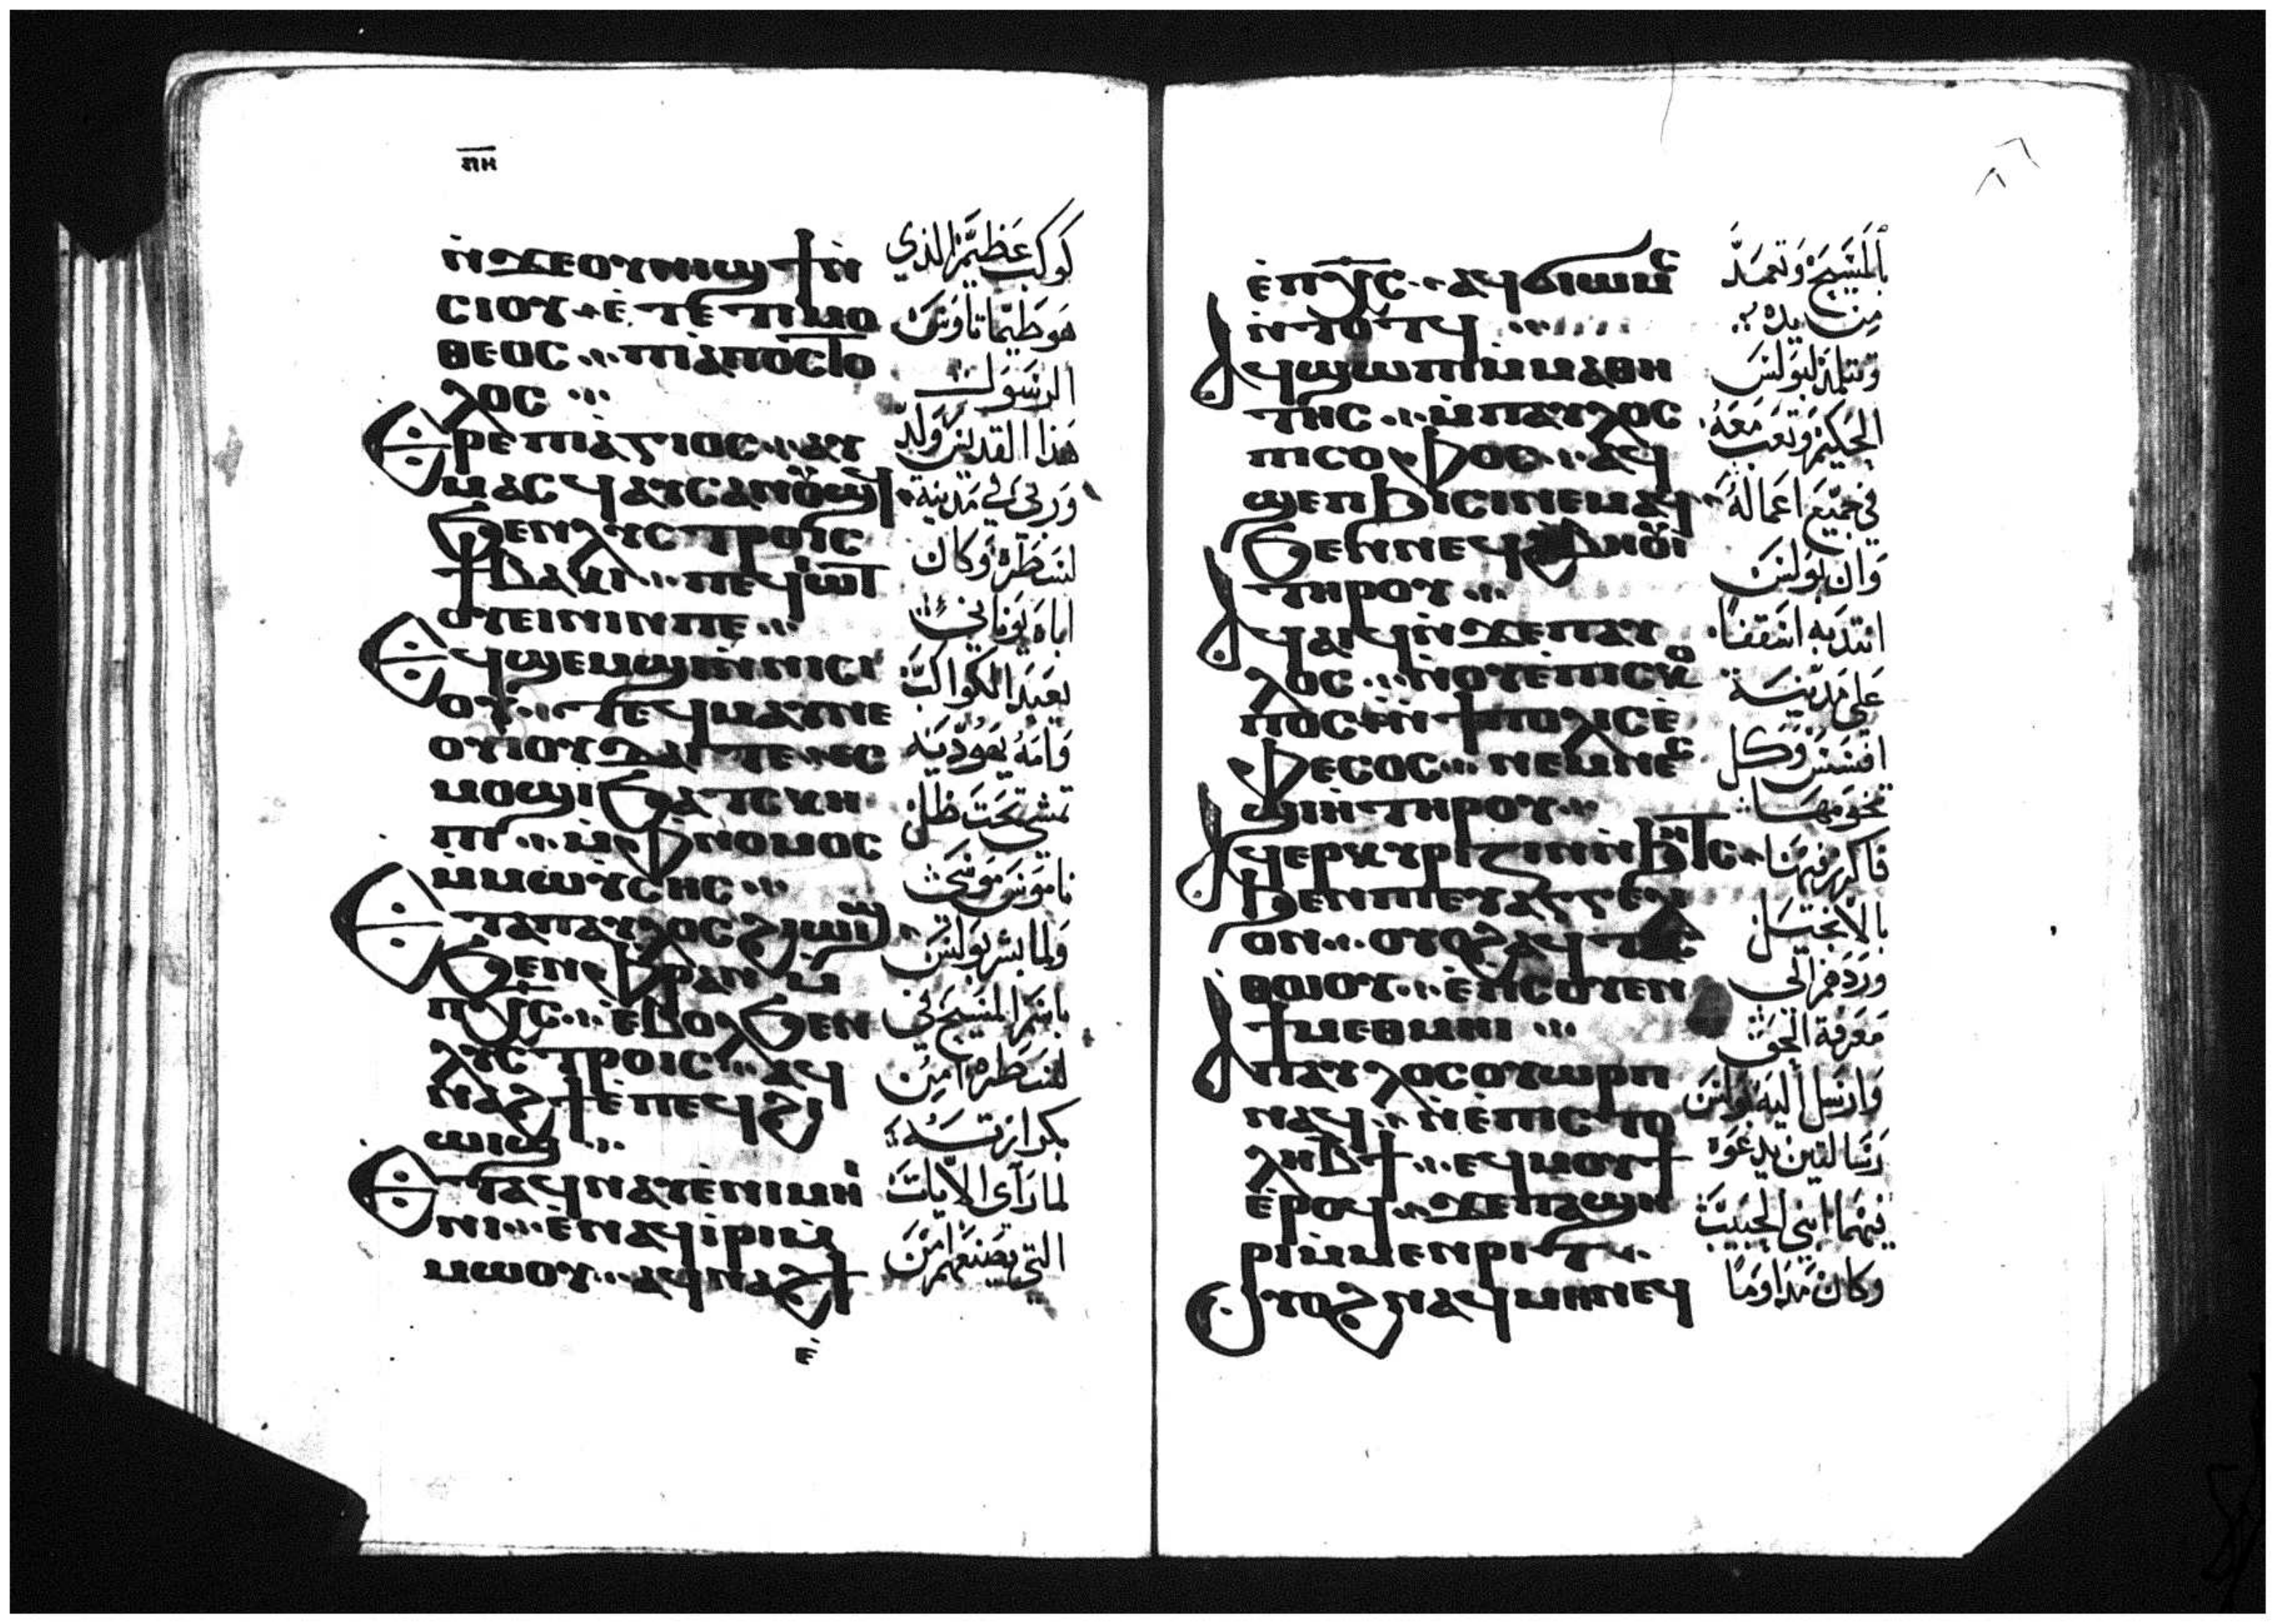 ⲡⲏ
ⲛ̀ϫⲉⲟⲩⲛⲓϣϯⲛ̀
ⲥⲓⲟⲩ ⲉ̀ⲧⲉ ⲧⲓⲙⲟ
ⲑⲉⲟⲥ ⲡⲓⲁⲡⲟⲥⲧⲟ
ⲗⲟⲥ
Ⲉⲣⲉⲡⲓⲁⲅⲓⲟⲥ ⲁⲩ
ⲙⲁⲥϥ ⲁⲩⲥⲁⲛⲟⲩϣϥ
ϧⲉⲛⲗⲩⲥⲧⲣⲟⲓⲥ
ϯⲃⲁⲕⲓ ⲡⲉϥⲓⲱⲧ
ⲟⲩⲉⲓⲛⲓⲛⲡⲉ
Ⲉϥϣⲉⲙϣⲓⲛ̀ⲛⲓⲥⲓ
ⲟⲩ ⲧⲉϥⲙⲁⲩⲛⲉ
ⲟⲩⲓⲟⲩⲇⲁⲓ ⲧⲉ ⲉⲥ
ⲙⲟϣⲓϧⲁⲧⲥⲕⲏ
ⲡⲓ ⲙ̀ⲫⲛⲟⲙⲟⲥ
ⲙ̀ⲙⲱⲩⲥⲏⲥ
Ⲉⲧⲁⲡⲁⲩⲗⲟⲥϩⲓⲱⲓϣ
ϧⲉⲛⲫⲣⲁⲛ ⲙ̀
ⲡⲭ̅ⲥ̅ ⲉ̀ⲃⲟⲗϧⲉⲛ
ⲗⲩⲥⲧⲣⲟⲓⲥ ⲁϥ
ⲛⲁϩϯⲉ̀ⲡⲉϥϩⲓ
ⲱⲓϣ
Ⲉⲧⲁϥⲛⲁⲩⲉ̀ⲛⲓⲙⲏⲓ
ⲛⲓ ⲉ̀ⲛⲁϥⲓ̀ⲣⲓⲙ̀
ⲙⲱⲟⲩ ⲁϥⲛⲁϩϯ
ⲉ̀
كوكب عظيم الذي
هو طيماتاوس
الرسول
هذا القديس ولد
وربى في مدينة
لسطره وكان
اباه يوناني
يعبد الكواكب
وامه يهودية
تمشي تحت ظل
ناموس موسى
ولما بشر بولس
باسم المسيح في
لسطره امن
بكرازته
لما راى الايات
التي يصنعهم امن
ⲉ̀ⲡⲭ̅ⲥ̅ ⲁϥϭⲓⲱⲙⲥ
ⲛ̀ⲧⲟⲧϥ
Ⲁϥϣⲱⲡⲓⲙ̀ⲙⲁⲑⲏ
ⲧⲏⲥ ⲙ̀ⲡⲁⲩⲗⲟⲥ
ⲡⲓⲥⲟⲫⲟⲥ ⲁϥ
ϣⲉⲡϧⲓⲥⲓⲛⲉⲙⲁϥ
ϧⲉⲛⲛⲉϥϩⲃⲏⲟⲩⲓ
ⲧⲏⲣⲟⲩ
Ⲁϥⲁⲓϥⲛ̀ϫⲉⲡⲁⲩ
ⲗⲟⲥ ⲛ̀ⲟⲩⲉ̀ⲡⲓⲥⲕⲟ
ⲡⲟⲥ ⲛ̀ϯⲡⲟⲗⲓⲥⲉ̀
ⲫⲉⲥⲟⲥ ⲛⲉⲙⲛⲉⲥ
ⲑⲱϣ ⲧⲏⲣⲟⲩ
Ⲁϥⲉⲣⲕⲩⲣⲓⲍⲓⲛⲛ̀ϧⲏⲧⲥ
ϧⲉⲛⲡⲓⲉⲩⲁⲅⲅⲉⲗⲓ
ⲟⲛ ⲟⲩⲟϩⲁϥⲧⲁⲥ
ⲑⲱⲟⲩ ⲉ̀ⲡⲥⲟⲩⲉⲛ
ϯⲙⲉⲑⲙⲏⲓ
Ⲁⲡⲁⲩⲗⲟⲥⲟⲩⲱⲣⲡ
ⲛⲁϥ ⲛ̀ⲉ̀ⲡⲓⲥⲧⲟ
ⲗⲏⲃ̅ϯ ⲉϥⲙⲟⲩϯ
ⲉ̀ⲣⲟϥ ϫⲉⲡⲁϣⲏ
ⲣⲓⲙ̀ⲙⲉⲛⲣⲓⲧ
Ⲟⲩⲟϩⲛⲁϥⲙⲏⲛⲉϥ
بالمسيح وتعمد
من يده
وتتلمذ لبولس
الحكيم وتعب معه
في جميع اعماله
وان بولس
اسقفاً
على مدينة
افسس وكل
تخومها
فاكرز فيها
بالانجيل
وردهم الى
معرفة الحق
وارسل اليه بولس
رسالتين يدعوه
فيهما ابني الحبيب
وكان مداوماً